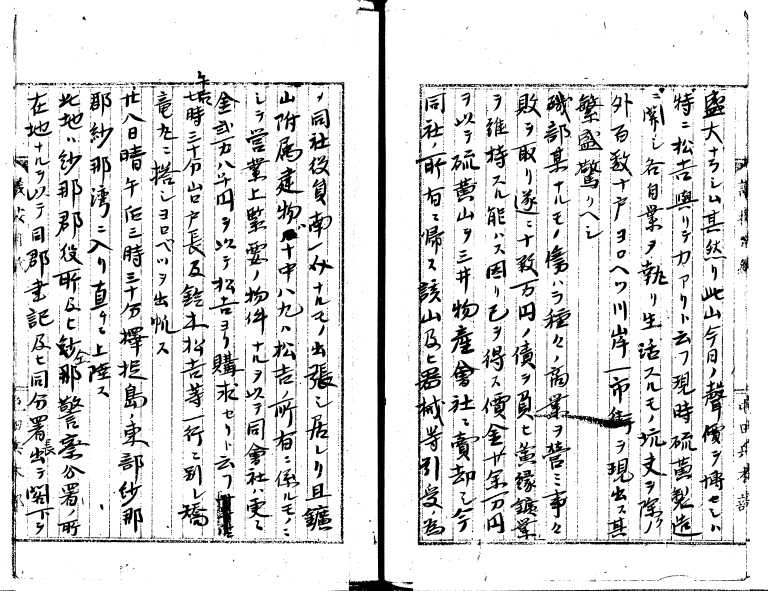 盛大ナラシム其然リ此山今日ノ聲價ヲ博セシハ
特ニ松吉與リテ力アリト云フ現時硫黄製造
ニ関シ各自業ヲ執リ生活スルモノ坑夫ヲ除ノ
外百数十戸ヨロベツ川岸一市街ヲ現出ス其
繁盛驚リヘシ
磯部某ナルモノ傍ハラ種々ノ商業ヲ営ミ事々
敗ヲ取リ遂ニ十数万円ノ債ヲ負ヒ為縁鑛業
ヲ維持スル能ハス因リ已ヲ得ス價金廿余万円
ヲ以テ硫黄山ヲ三井物産會社ニ賣却シ今
同社ノ所有ニ帰ス該山及ヒ器械等引受為
ノ同社役員南一介ナルモノ出張シ居レリ且鑛
山附属建物十中八九ハ松吉ノ所有ニ係ルモノニ
シテ営業上緊要ノ物件ナルヲ以テ同會社ハ更ニ
金弐万八千円ヲ以テ松吉ヨリ購求セリト云フ
午后七時三十分山口戸長及鈴木松吉等一行ニ別レ矯
竜丸ニ搭シヨロベツヲ出帆ス
廿八日晴午后三時三十分擇捉島ノ東部紗那
郡紗那湾ニ入リ直ニ上陸ス
此地ハ紗那郡役所及ヒ紗那警察分署ノ所
在地ナルヲ以テ同郡書記及ヒ同分署長出テ閣下ヲ